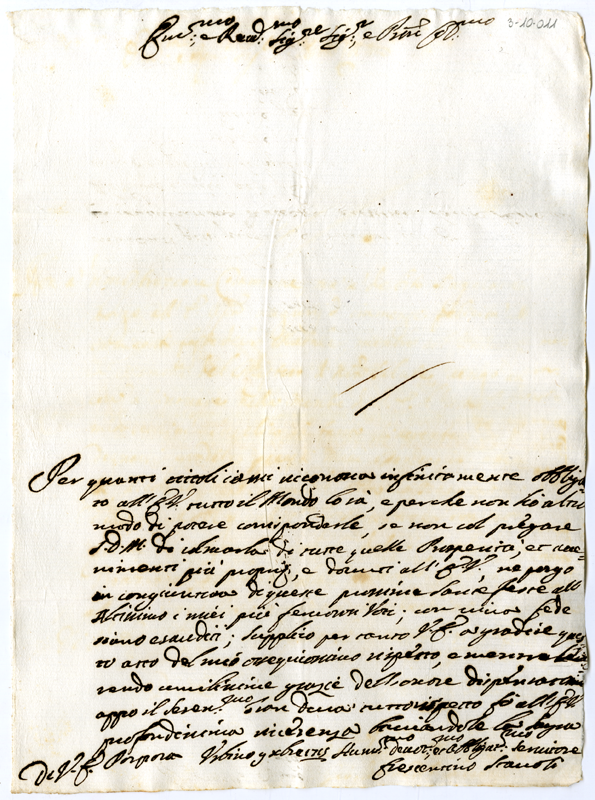 3-10-011
Em.mo, e Rev.mo Sig.re Sig.r, e Pron. Col.mo
Per quanti titoli io mi riconosca infinitamente obbliga
to all'E.V. tutto il Mondo lo sà, e perche non hò altro
modo di potere corrisponderle, se non col pregare
S.D.M. di colmarla di tutte quelle Prosperità, et avve=
nimenti più propizj, e dovuti all'E.V., ne porgo
in congiuntura di queste prossime Sante feste all'
Altissimo i miei più fervorosi Voti, con viva fede
siano esauditi; supplico per tanto V.E. a gradire ques
to atto del mio ossequiosissimo rispetto, e mentre
rendo umilissime grazie dell'onore
appo il Seren.mo Gran Duca tutto rispetto fò all'E.V.
profondissima riverenza baciandole la Sagra
Di V.E. Porpora Urbino Xbre Umil.mo Devot.mo et Obblig.mo Servitore
Crescentino